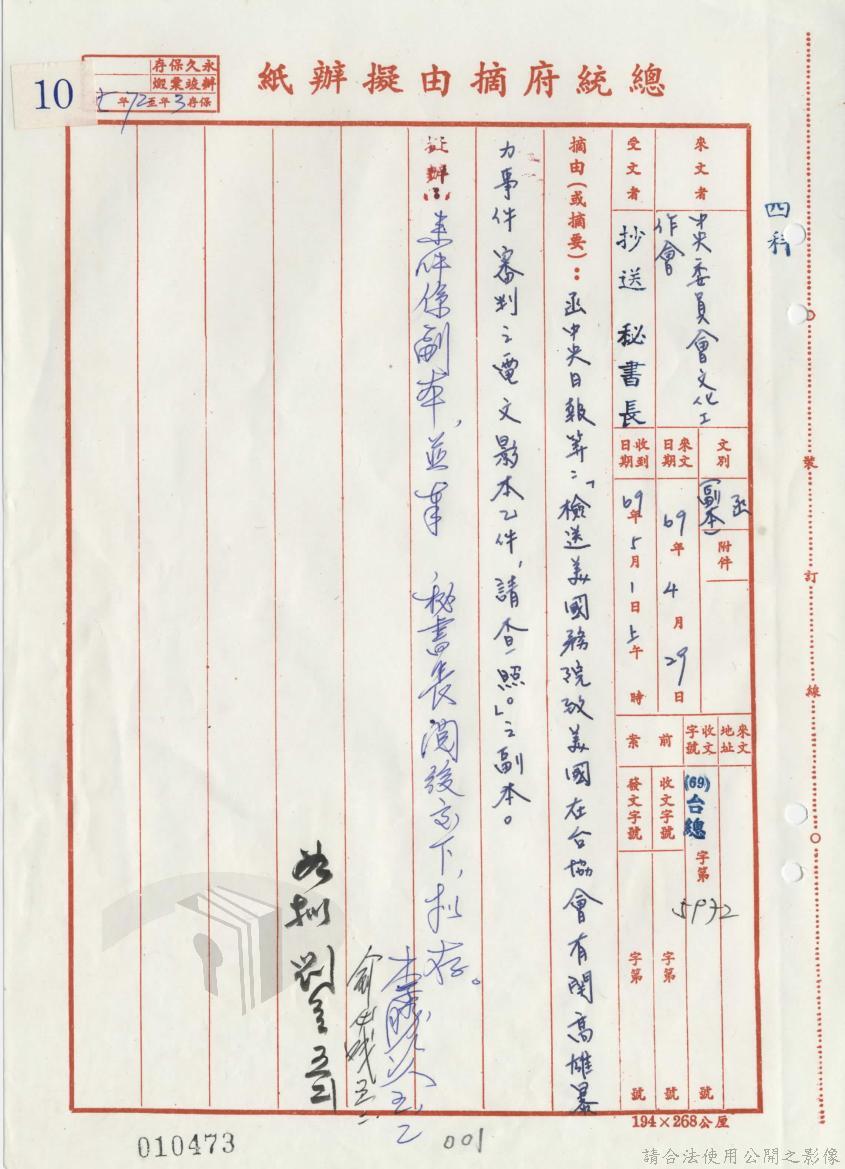 總統府摘由擬辦紙
10
永久保存
辦竣彙燬
保存3年至72年
四科
來文者
中央委員會文化工
作會
受文者
抄送 秘書長
文別
函
(副本)
附件
來文日期
69年4月29日
收到日期
69年5月1日上午 時
來文地址
收文字號
(69)
台總
字第
5972
號
前案
收文字號
字第 號
發文字號
字第 號
摘由(或摘要):函中央日報等:「檢送美國務院致美國在台協會有関高雄暴
力事件審判之電文影本乙件,請查照。」之副本。
擬辦:
來件係副本,並奉 秘書長閱後交下,擬存。
五.乙
俞 五.二
如擬 劉 五.二
裝
訂
線
194×268公厘
010473
001
請合法使用公開之影像